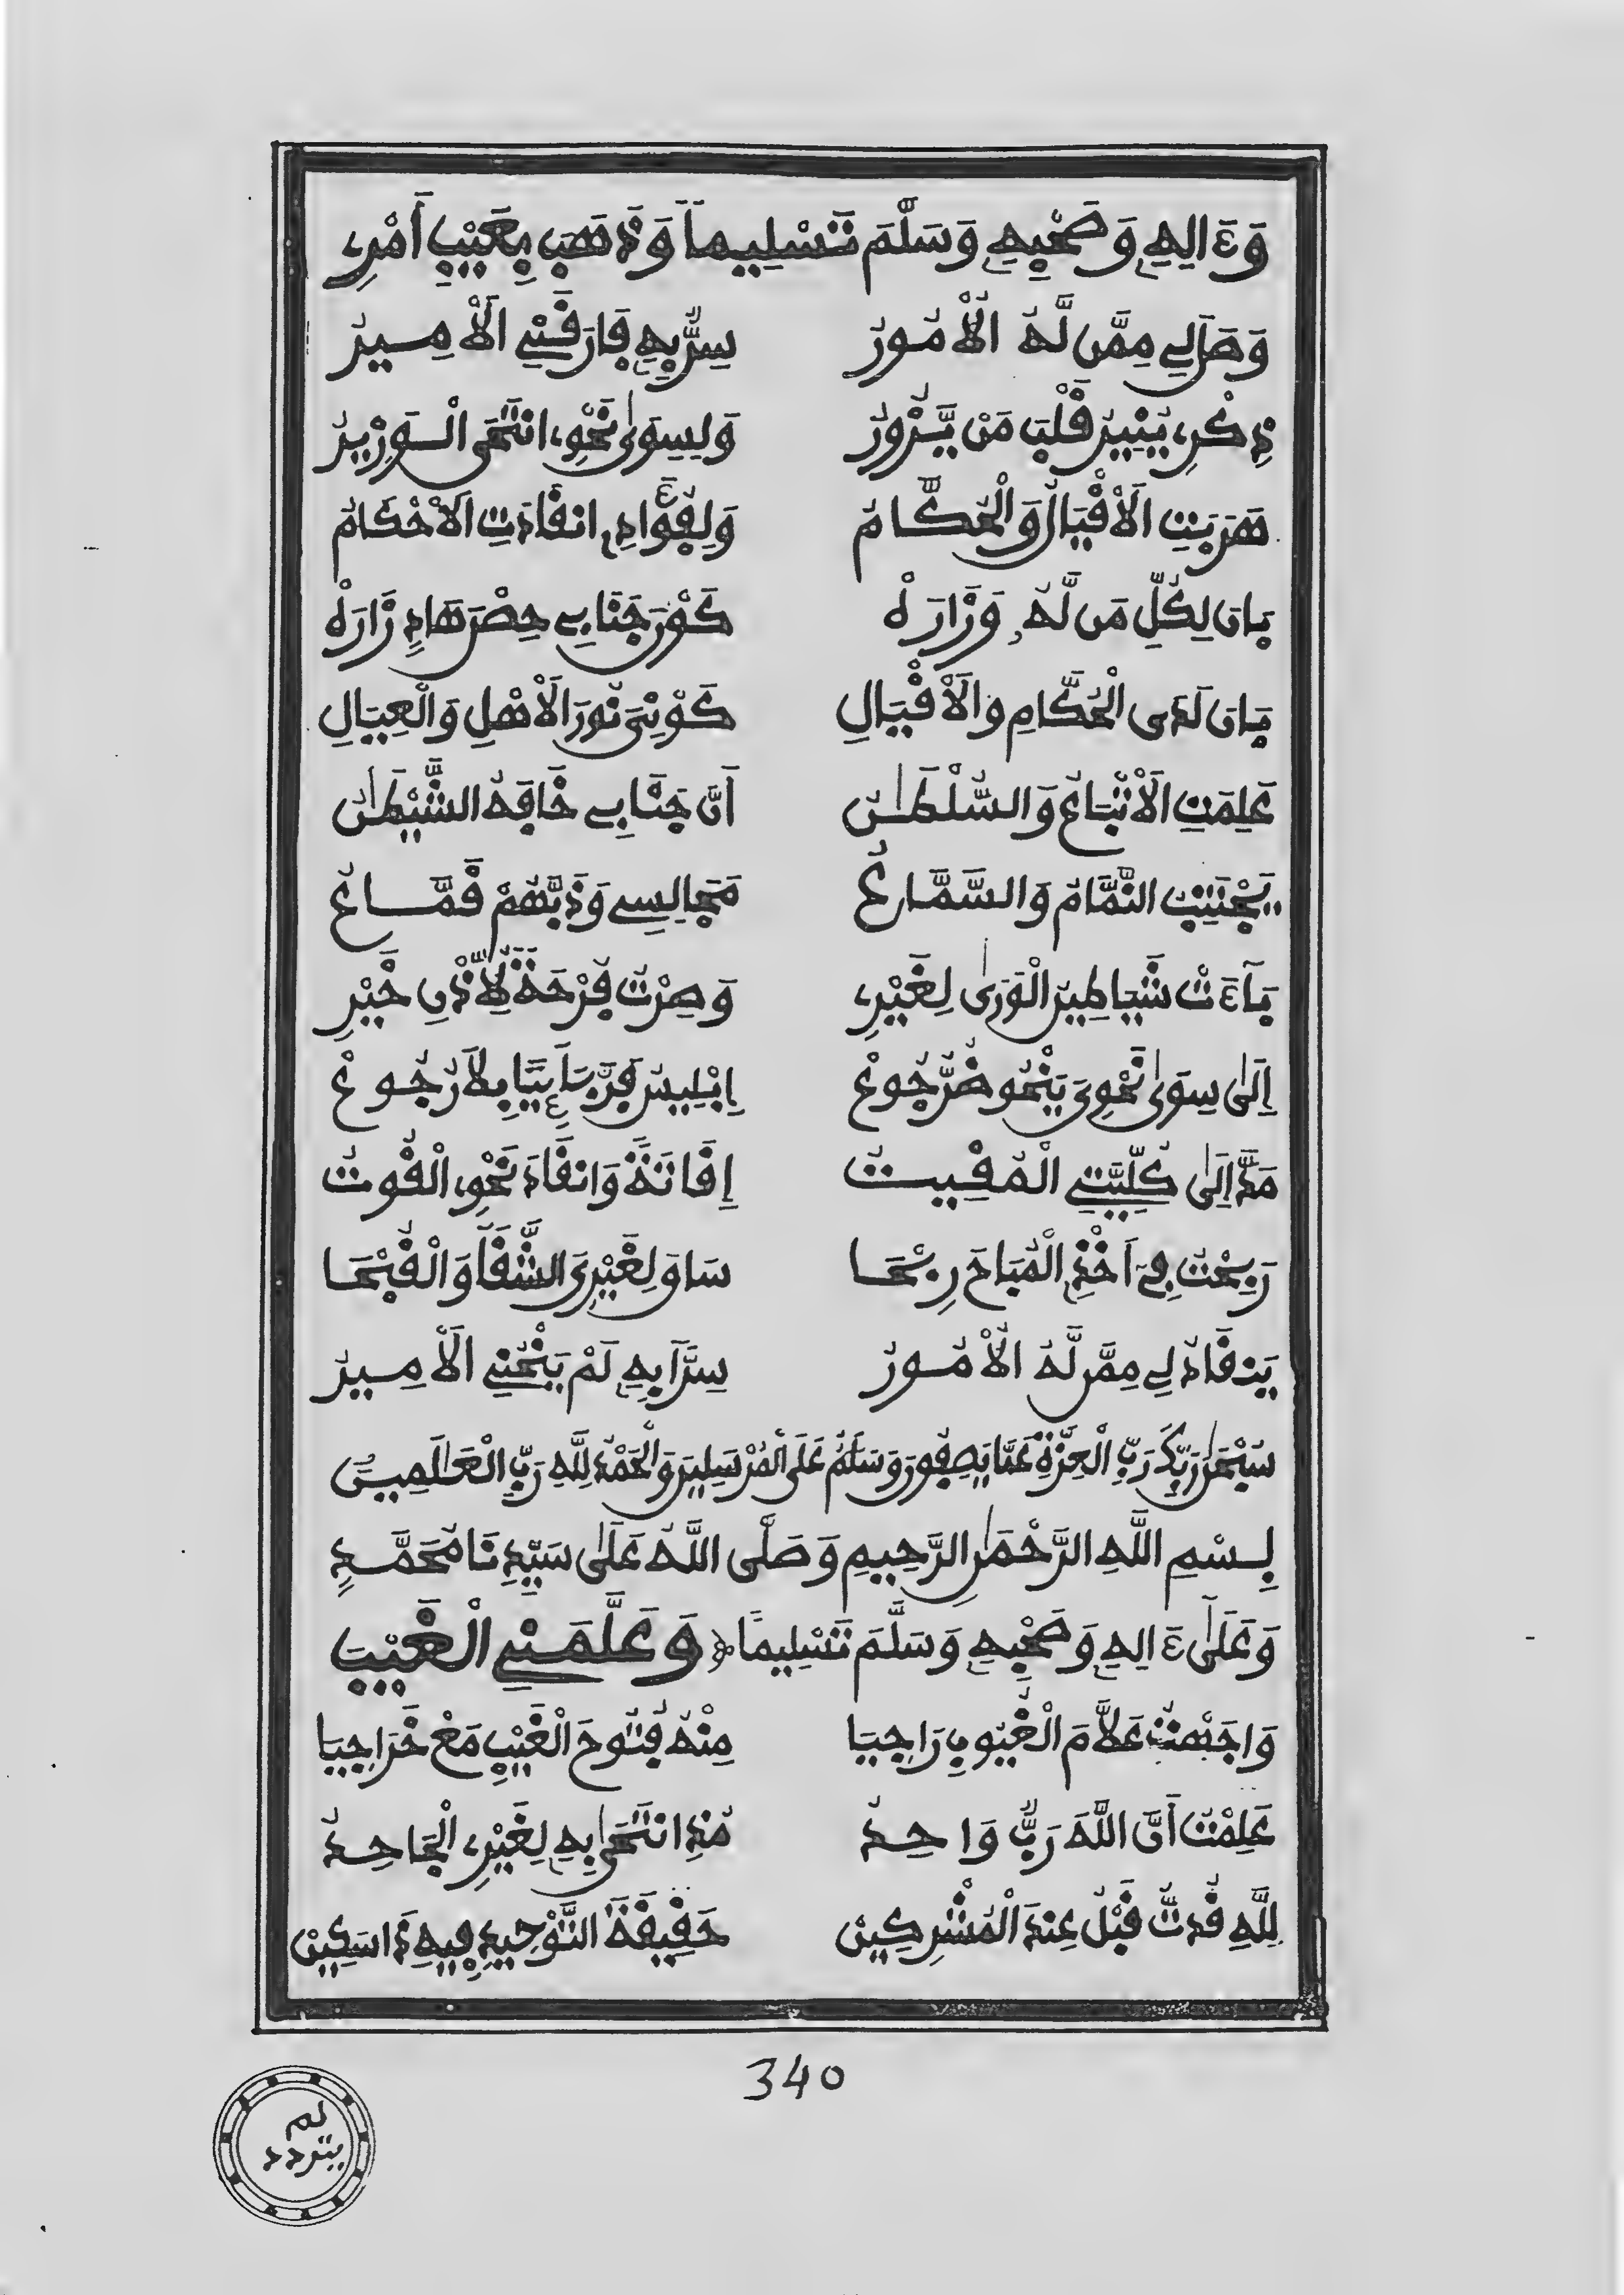 وَءَالِهِ وَصَحْبِهِ وَسَلَّمَ تَسْلِيماً وَذَهَبَ بِعَيْبِ أَمْرِي
وَصَلَ لِي مِمَّن لَّهُ الْأُمُورُ سِرٌّ بِهِ فَارَقَنِي الْأَمِيرُ
ذِكْرِي يُنِيرُ قَلْبَ مَنْ يَّزُورُ وَلِسِوَى نَحْوِي انْتَحَى الْوَزِيرُ
هَرَبَتِ الْأَقْيَالُ وَالْحُكَّامُ وَلِفُؤَادِي انْقَادَتِ الْأَحْكَامُ
بَانَ لِكُلِّ مَن لَّهُ وَزَارَهْ كَوْنُ جَنَابِي حِصْنَ هَادٍ زَارَهْ
بَانَ لَدَى الْحُكَّامِ وَالْأَقْيَالِ كَوْنِيَ نُورَ الْأَهْلِ وَالْعِيَالِ
عَلِمَتِ الْأَتْبَاعُ وَالسُّلْطَٰنُ أَنَّ جَنَابِي خَافَهُ الشَّيْطَٰنُ
يَجْتَنِبُ النَّمَّامُ وَالسَّمَّاعُ مَجَالِسِي وَذَبَّهُمْ قَمَّاعُ
بَاءَتْ شَيَاطِينُ الْوَرَى لِغَيْرِي وَصِرْتُ فَرْحَةً لِأَهْلِ خَيْرِ
إِلَى سِوَى نَحْوِيَ يَنْحُو ضُرُّ جُوعْ إِبْلِيسُ فَرَّ آيِباً بِلَا رُجُوعْ
مَدَّ إِلَى كُلِّيَّتِي الْمُقِيتُ إِقَاتَةً وَانْقَادَ نَحْوِي الْقُوتُ
رَبِحْتُ فِي أَخْذِ الْمُبَاحِ رِبْحَا سَاقَ لِغَيْرِيَ الشَّقَا وَالْقُبْحَا
يَنْقَادُ لِي مِمَّن لَّهُ الْأُمُورُ سِرًّا بِهِ لَمْ يَنْحُنِي الْأَمِيرُ
سُبْحَٰنَ رَبِّكَ رَبِّ الْعِزَّةِ عَمَّا يَصِفُونَ وَسَلَٰمٌ عَلَى الْمُرْسَلِينَ وَالْحَمْدُ لِلَّهِ رَبِّ الْعَٰلَمِينَ
بِسْمِ اللَّهِ الرَّحْمَٰنِ الرَّحِيمِ وَصَلَّى اللَّهُ عَلَى سَيِّدِنَا مُحَمَّدٍ
وَعَلَى ءَالِهِ وَصَحْبِهِ وَسَلَّمَ تَسْلِيماً وَعَلَّمَنِي الْغَيْبَ
وَاجَهْتُ عَلَّامَ الْغُيُوبِ رَاجِيَا مِنْهُ فُتُوحَ الْغَيْبِ مَعْ خَرَاجِيَا
عَلِمْتُ أَنَّ اللَّهَ رَبٌّ وَاحِدُ مُذِ انْتَحَى بِهِ لِغَيْرِي الْجَاحِدُ
لِلَّهِ قُدتُّ قَبْلُ عِنْدَ الْمُشْرِكِينْ حَقِيقَةَ التَّوْحِيدِ فِيهِ ذَا سَكِينْ
340
لم
يتردد